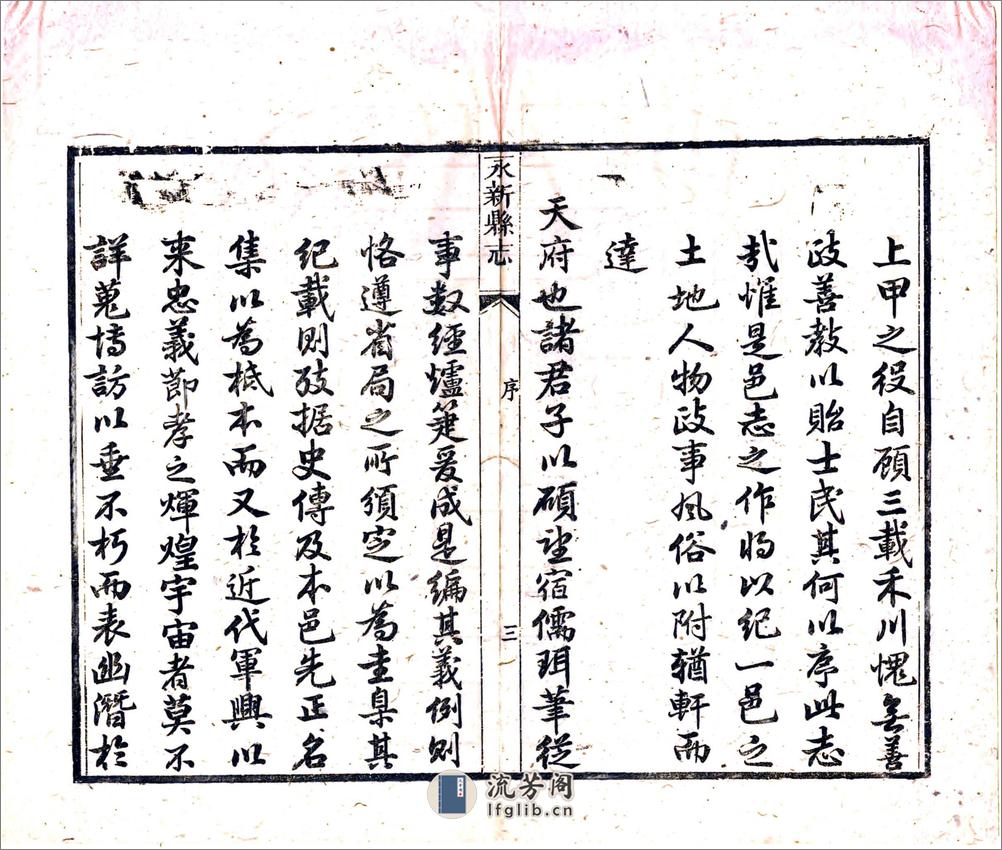 上甲之役自顧三載禾川愧無善
政善教以貽士民其何以序此志
哉惟是邑志之作將以紀一邑之
土地人物政事風俗以附輶軒而
達
天府也諸君子以碩望宿儒珥筆從
永新縣志
序
三
事數經爐箑爰成是編其義例則
恪遵省局之所頒定以為圭臬其
紀載則攷據史傳及本邑先正名
集以為柢本而又於近代軍興以
來忠義節孝之煇煌宇宙者莫不
詳蒐博訪以垂不朽而表幽潛於
流芳阁
lfglib.cn